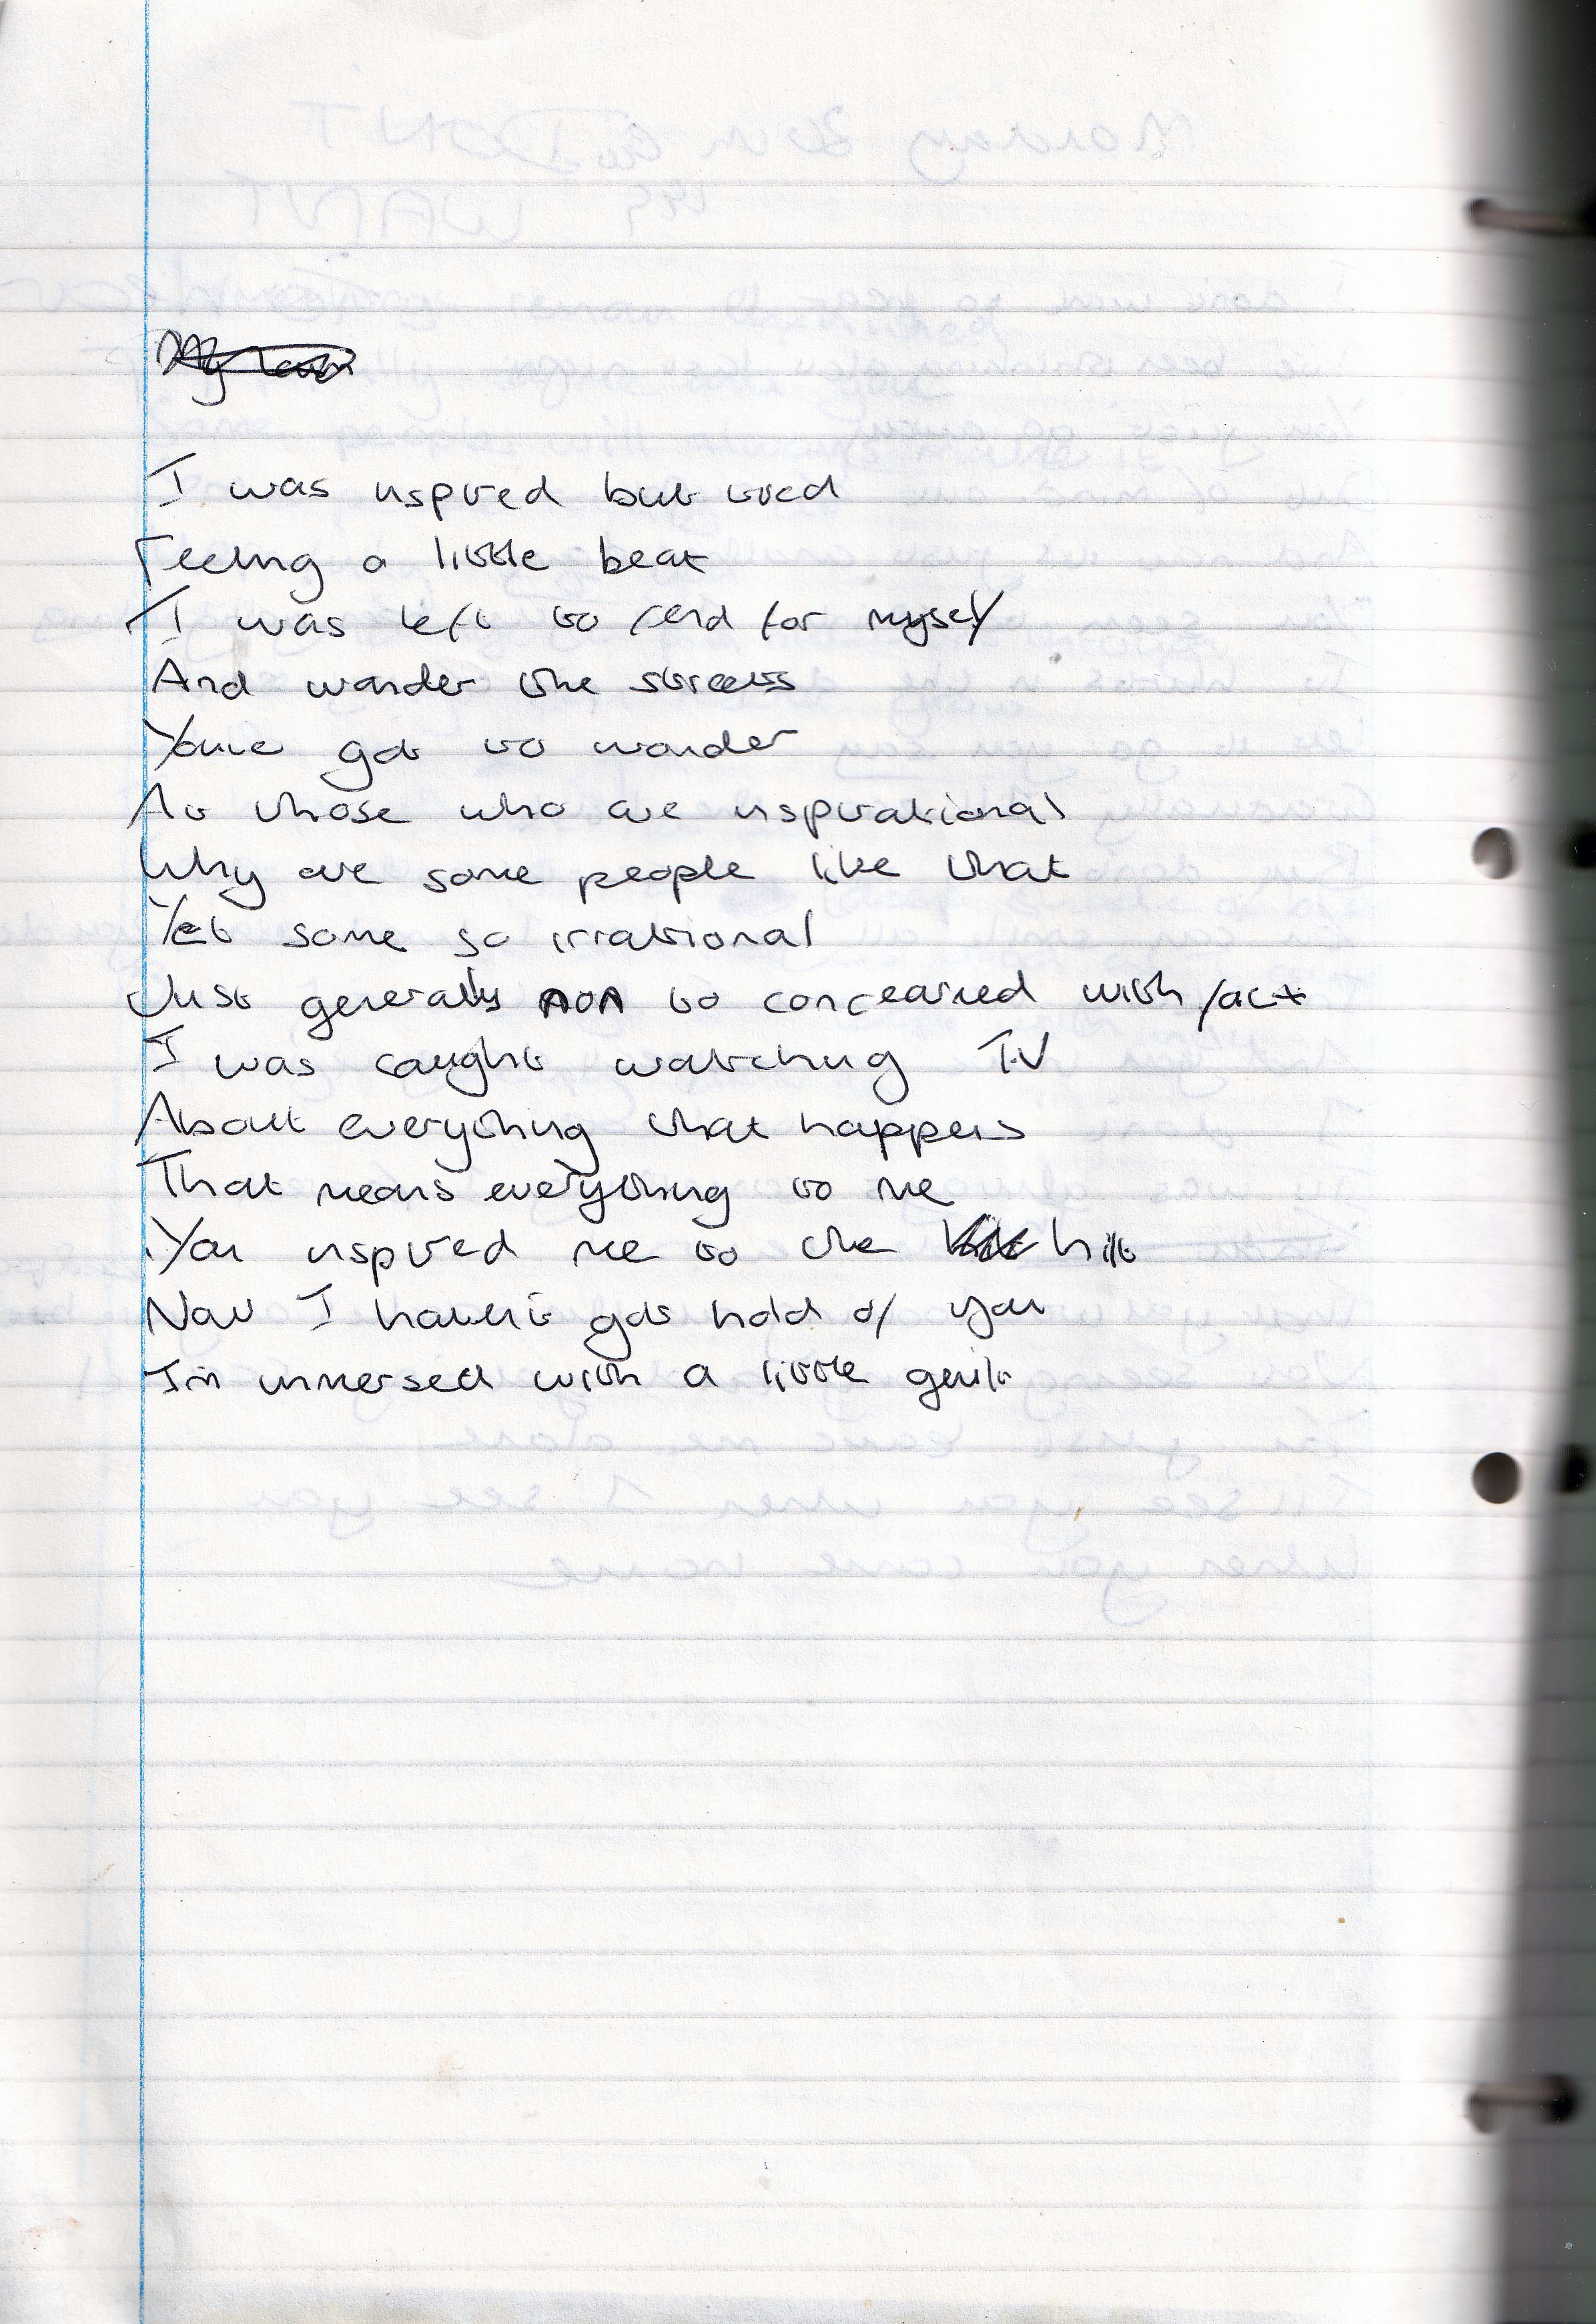 I was inspired but tired
Feeling a little beat
I was left to fend for myself
And wander the streets
Youve got to wonder
At those who are inspirational
Why are some people like that
Yet some so irrational
Just generally non to concearned with fact
I was caught watching TV
About everything that happens
That means everything to me
You inspired me to the hilt
Now I haven't got hold of you
I'm immersed with a little guilt